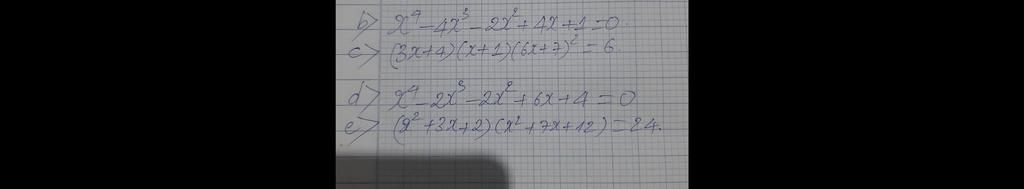 b> x⁴ - 4x³ - 2x² + 4x + 1 = 0.
c> (3x+4)(x+1)(6x+7)² = 6.
d> x⁴ - 2x³ - 2x² + 6x + 4 = 0
e> (x² + 3x + 2)(x² + 7x + 12) = 24.